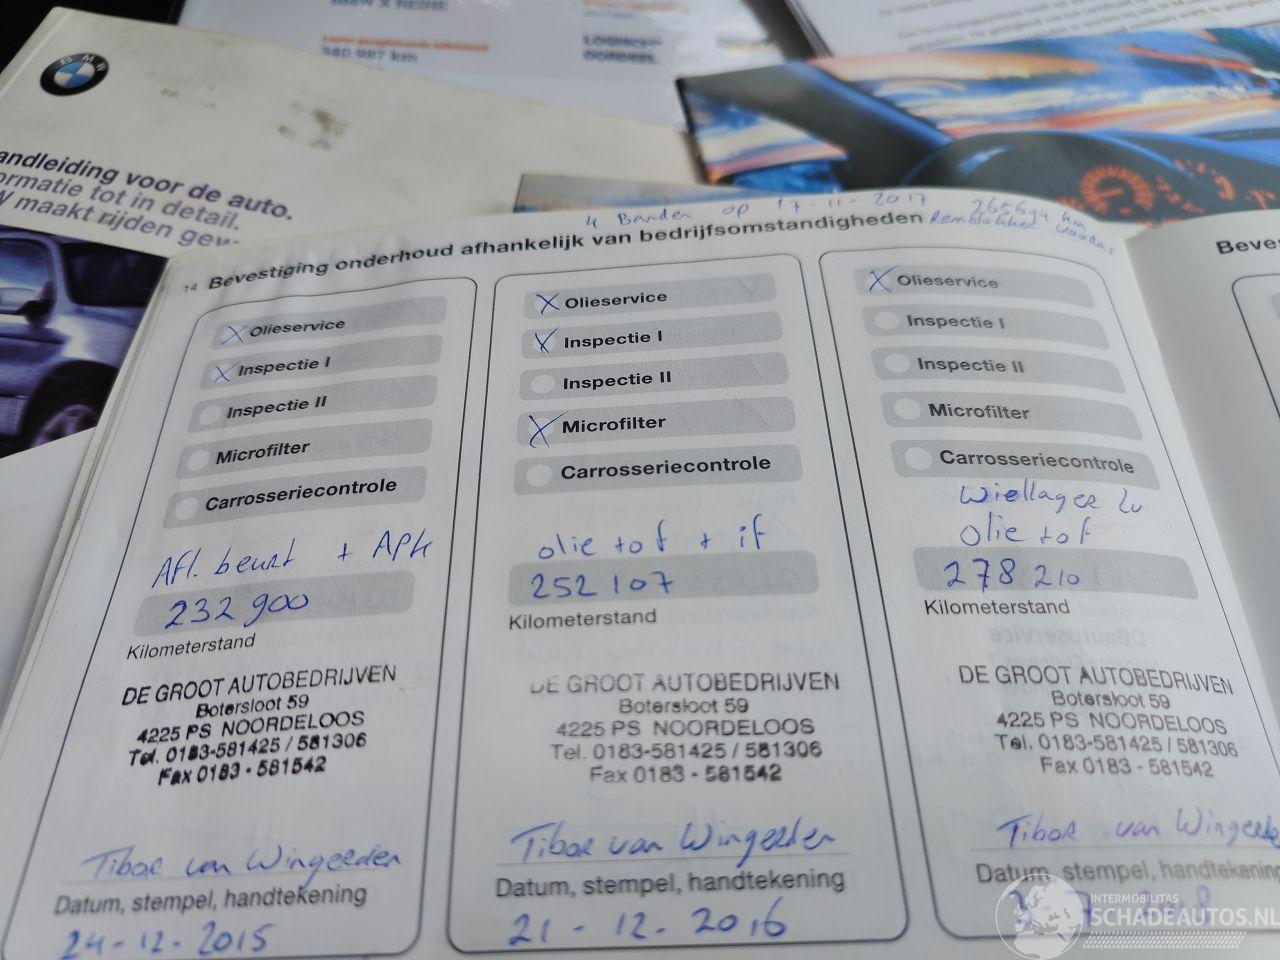 BMW X REIHE
340.987 km
LOGISCH
OORDEEL
BMW
andleiding voor de auto.
ormatie tot in detail.
W maakt rijden gew
4 Banden op 17-11-2017 265694 km
Remblokken vooras
14 Bevestiging onderhoud afhankelijk van bedrijfsomstandigheden
Beves
X Olieservice
X Inspectie I
Inspectie II
Microfilter
Carrosseriecontrole
Afl. beurt + Apk
232900
Kilometerstand
DE GROOT AUTOBEDRIJVEN
Botersloot 59
4225 PS NOORDELOOS
Tel. 0183-581425 / 581306
Fax 0183 - 581542
Tibor van Wingerden
Datum, stempel, handtekening
24-12-2015
X Olieservice
X Inspectie I
Inspectie II
X Microfilter
Carrosseriecontrole
olie tof + if
252107
Kilometerstand
DE GROOT AUTOBEDRIJVEN
Botersloot 59
4225 PS NOORDELOOS
Tel. 0183-581425 / 581306
Fax 0183 - 581542
Tibor van Wingerden
Datum, stempel, handtekening
21-12-2016
X Olieservice
Inspectie I
Inspectie II
Microfilter
Carrosseriecontrole
Wiellager
Olie tof
278210
Kilometerstand
DE GROOT AUTOBEDRIJVEN
Botersloot 59
4225 PS NOORDELOOS
Tel. 0183-581425 / 581306
Fax 0183 - 581542
Tibor van Wingerde
Datum, stempel, handtekening
INTERMOBILITAS
SCHADEAUTOS.NL